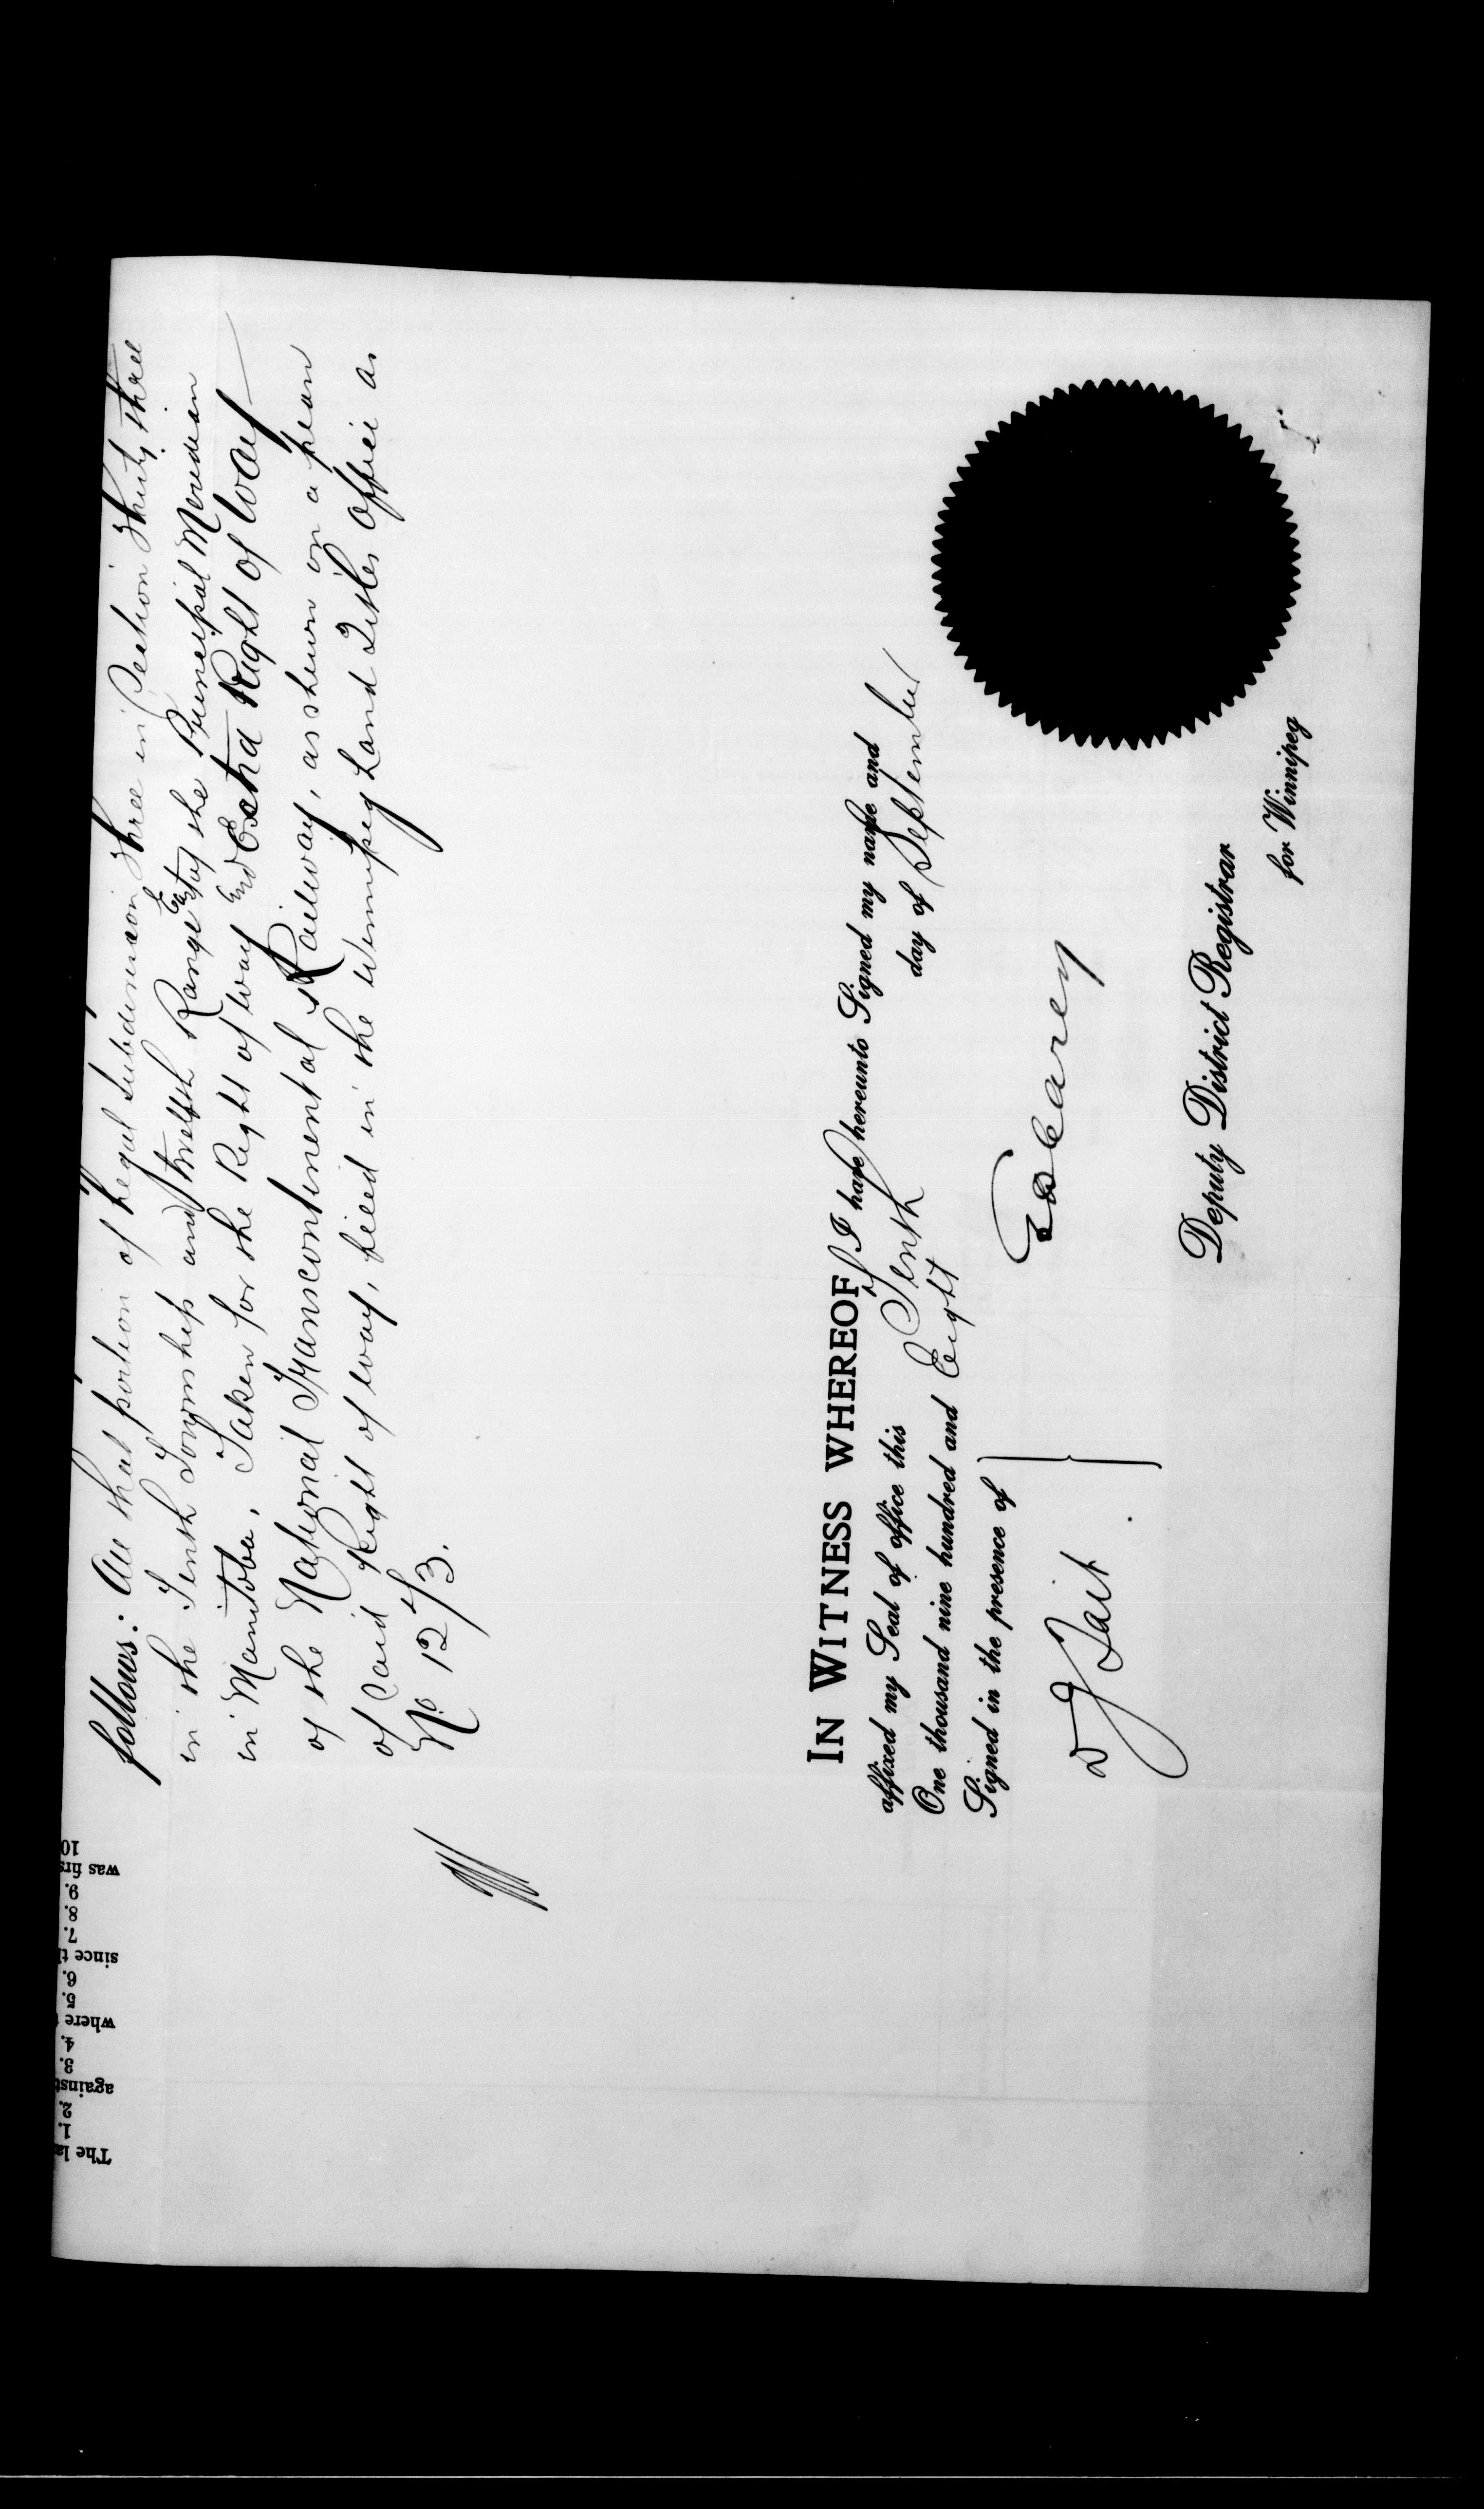 follows: All that portion of Legal Subdivision Three in Section Thirty three
in the Tenth Township and Twelfth Range East of the Principal Meridian
in Manitoba, Taken for the Right of way and Extra Right of Way
of the National Transcontinental Railway, as shewn on a plan
of said Right of way, filed in the Winnipeg Land Titles Office as
No 1243.
IN WITNESS WHEREOF I have hereunto Signed my name and
affixed my Seal of office this Tenth day of September
One thousand nine hundred and Eight
Signed in the presence of
Deputy District Registrar
for Winnipeg
The la
1.
2.
against
3.
4.
where
5.
6.
since th
7.
8.
9.
was firs
10